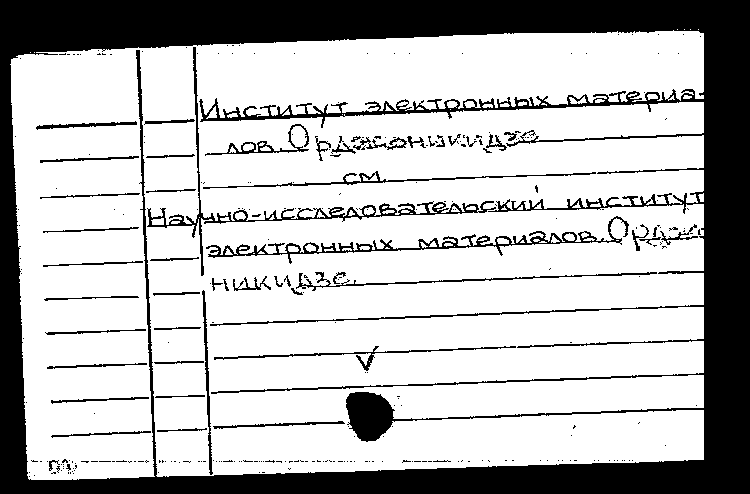 Институт электронных материа-
лов. Орджоникидзе
см.
Научно-исследовательский институт
электронных материалов. Орджо
никидзе.